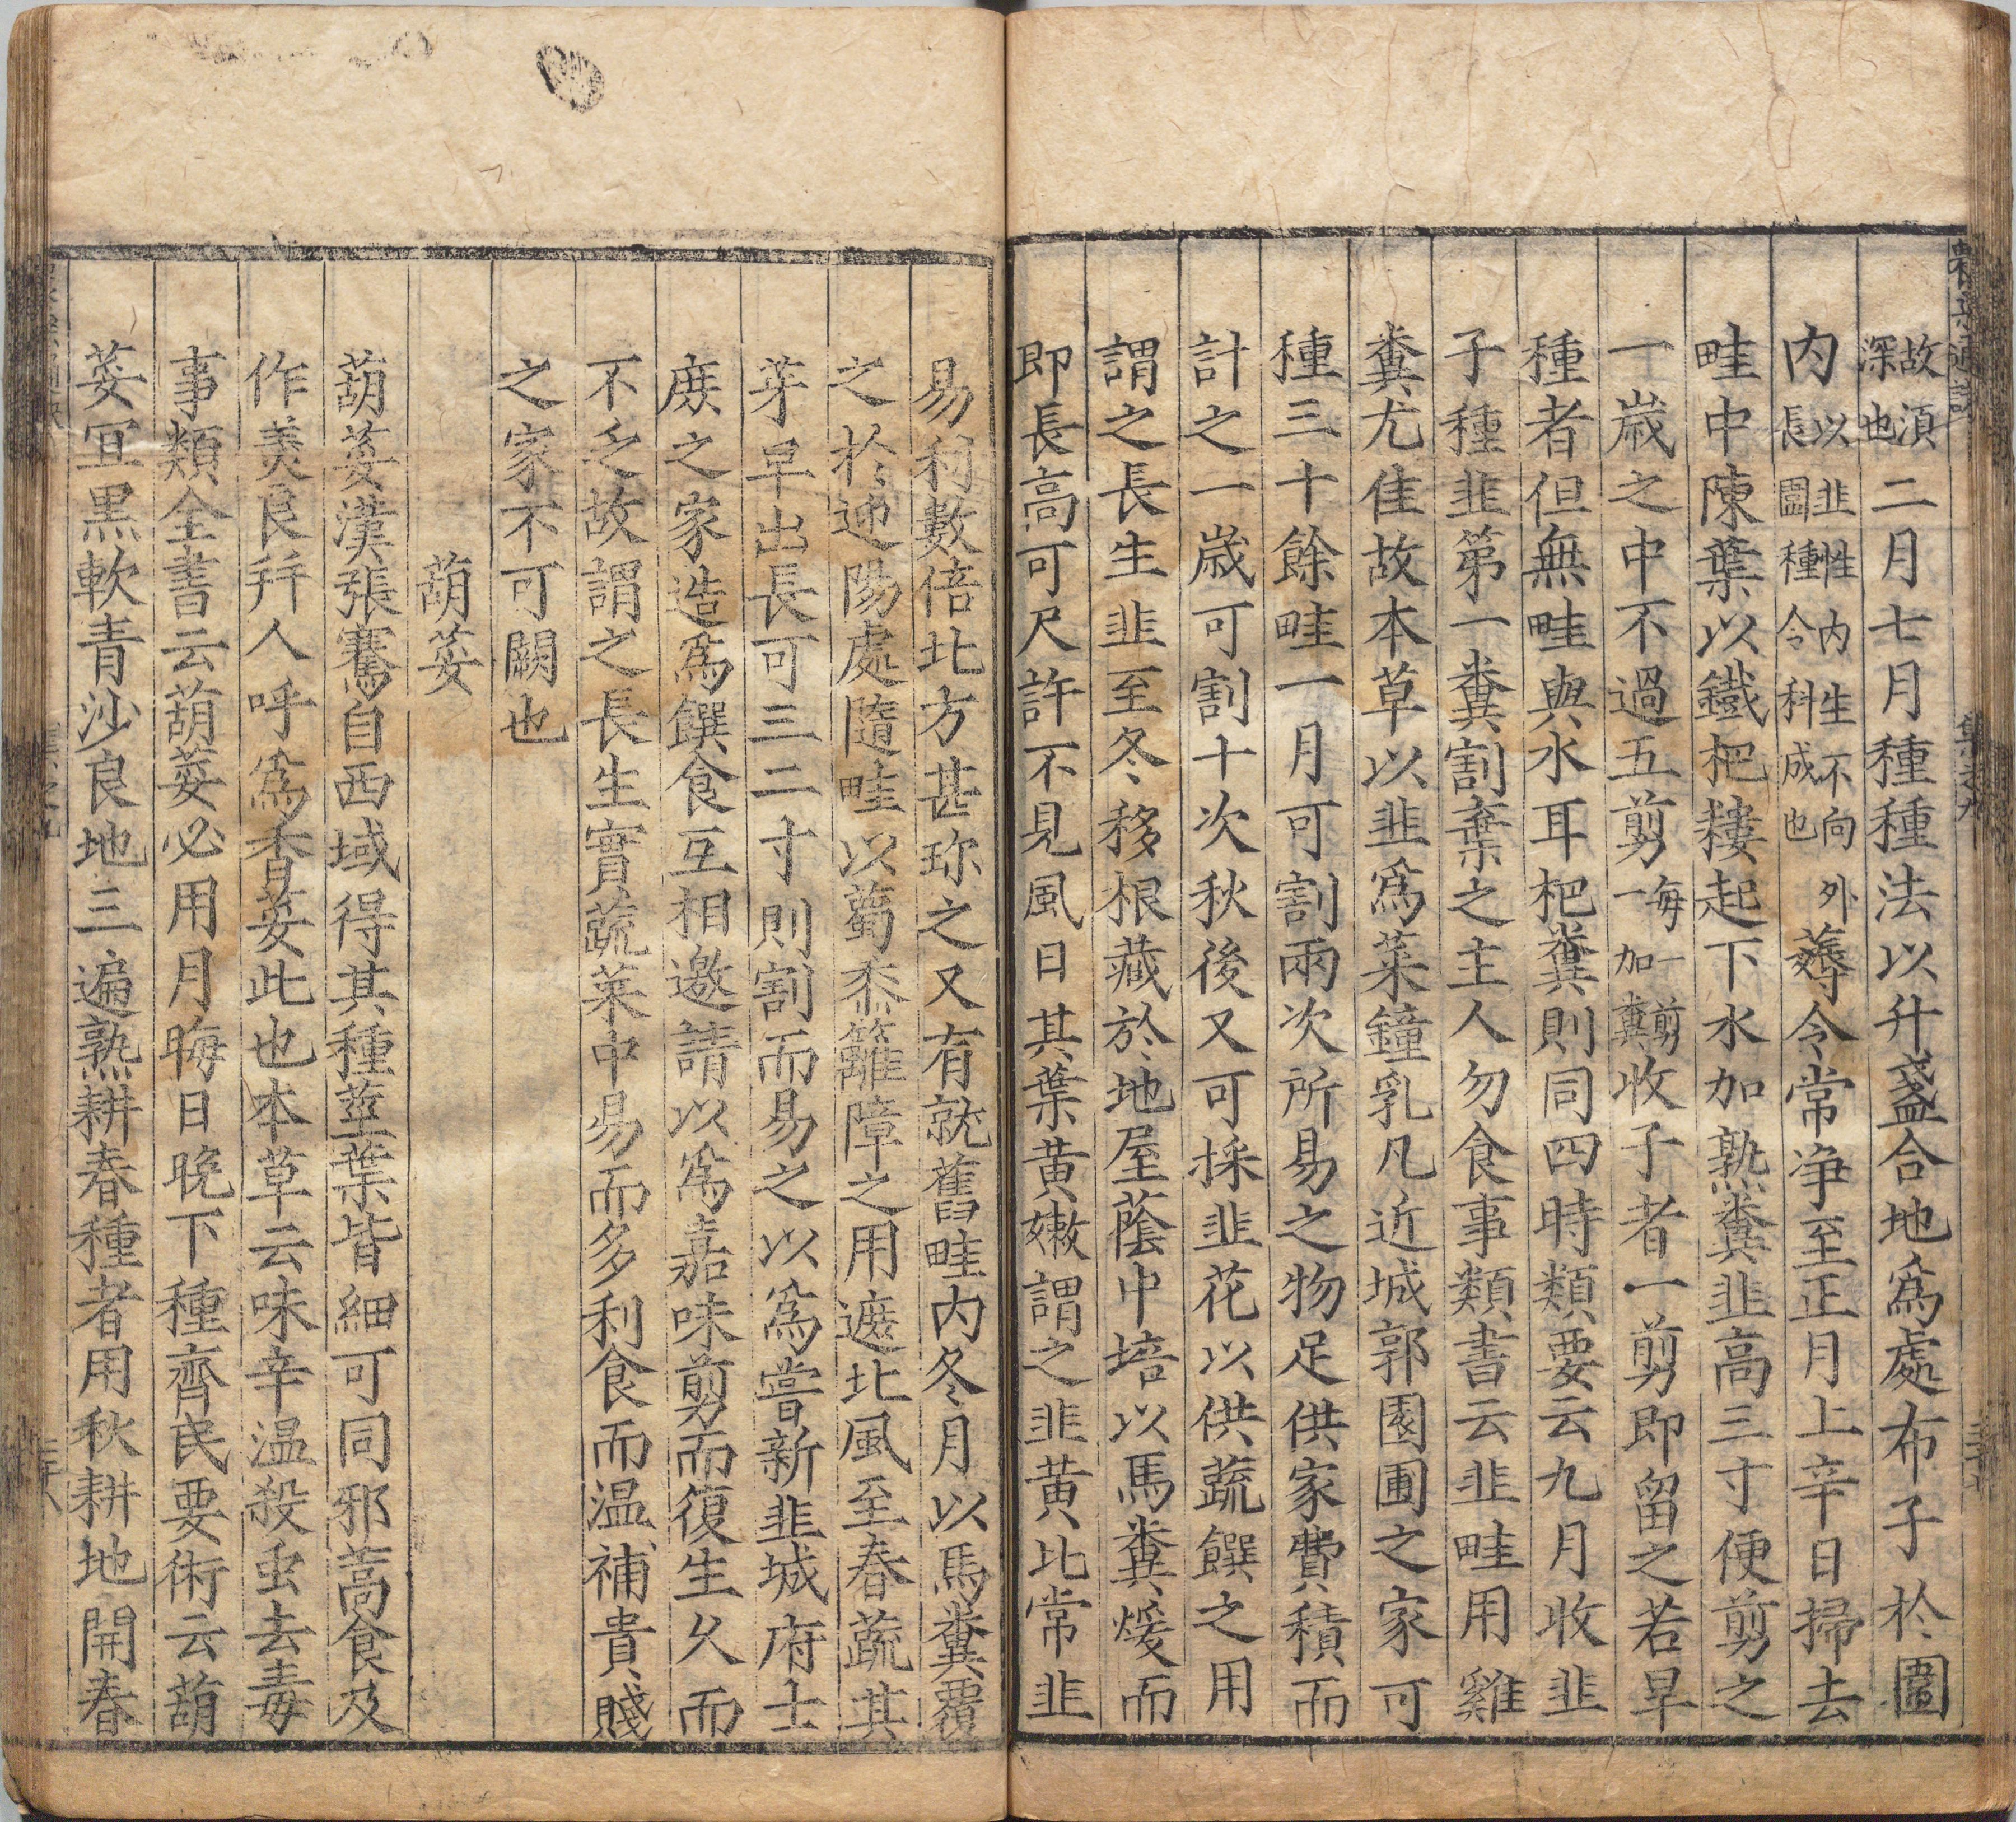 故須深也二月七月種種法以升盞合地爲處布子於圍
內以韭性內生不向外長圍種令科成也薅令常净至正月上辛日掃去
畦中陳葉以鐵杷耬起下水加熟糞韭高三寸便剪之
一歲之中不過五剪每一剪一加糞收子者一剪即留之若旱
種者但無畦與水耳杷糞則同四時類要云九月收韭
子種韭第一糞割棄之主人勿食事類書云韭畦用雞
糞尤佳故本草以韭爲菜鐘乳凡近城郭園圃之家可
種三十餘畦一月可割兩次所易之物足供家費積而
計之一歲可割十次秋後又可採韭花以供蔬饌之用
謂之長生韭至冬移根藏於地屋蔭中培以馬糞煖而
即長高可尺許不見風日其葉黄嫩謂之韭黄比常韭
易利數倍北方甚珎之又有就舊畦内冬月以馬糞覆
之於迎陽處隨畦以蜀黍籬障之用遮北風至春蔬其
芽早出長可三二寸則割而易之以爲嘗新韭城府士
庶之家造爲饌食互相邀請以爲嘉味剪而復生久而
不乏故謂之長生實蔬菜中易而多利食而温補貴賤
之家不可闕也
葫荽
葫荽漢張騫自西域得其種莖葉皆細可同邪蒿食及
作羙良并人呼爲香荽此也本草云味辛温殺虫去毒
事類全書云葫荽必用月晦日晚下種齊民要術云葫
荽宜黑軟青沙良地三遍熟耕春種者用秋耕地開春